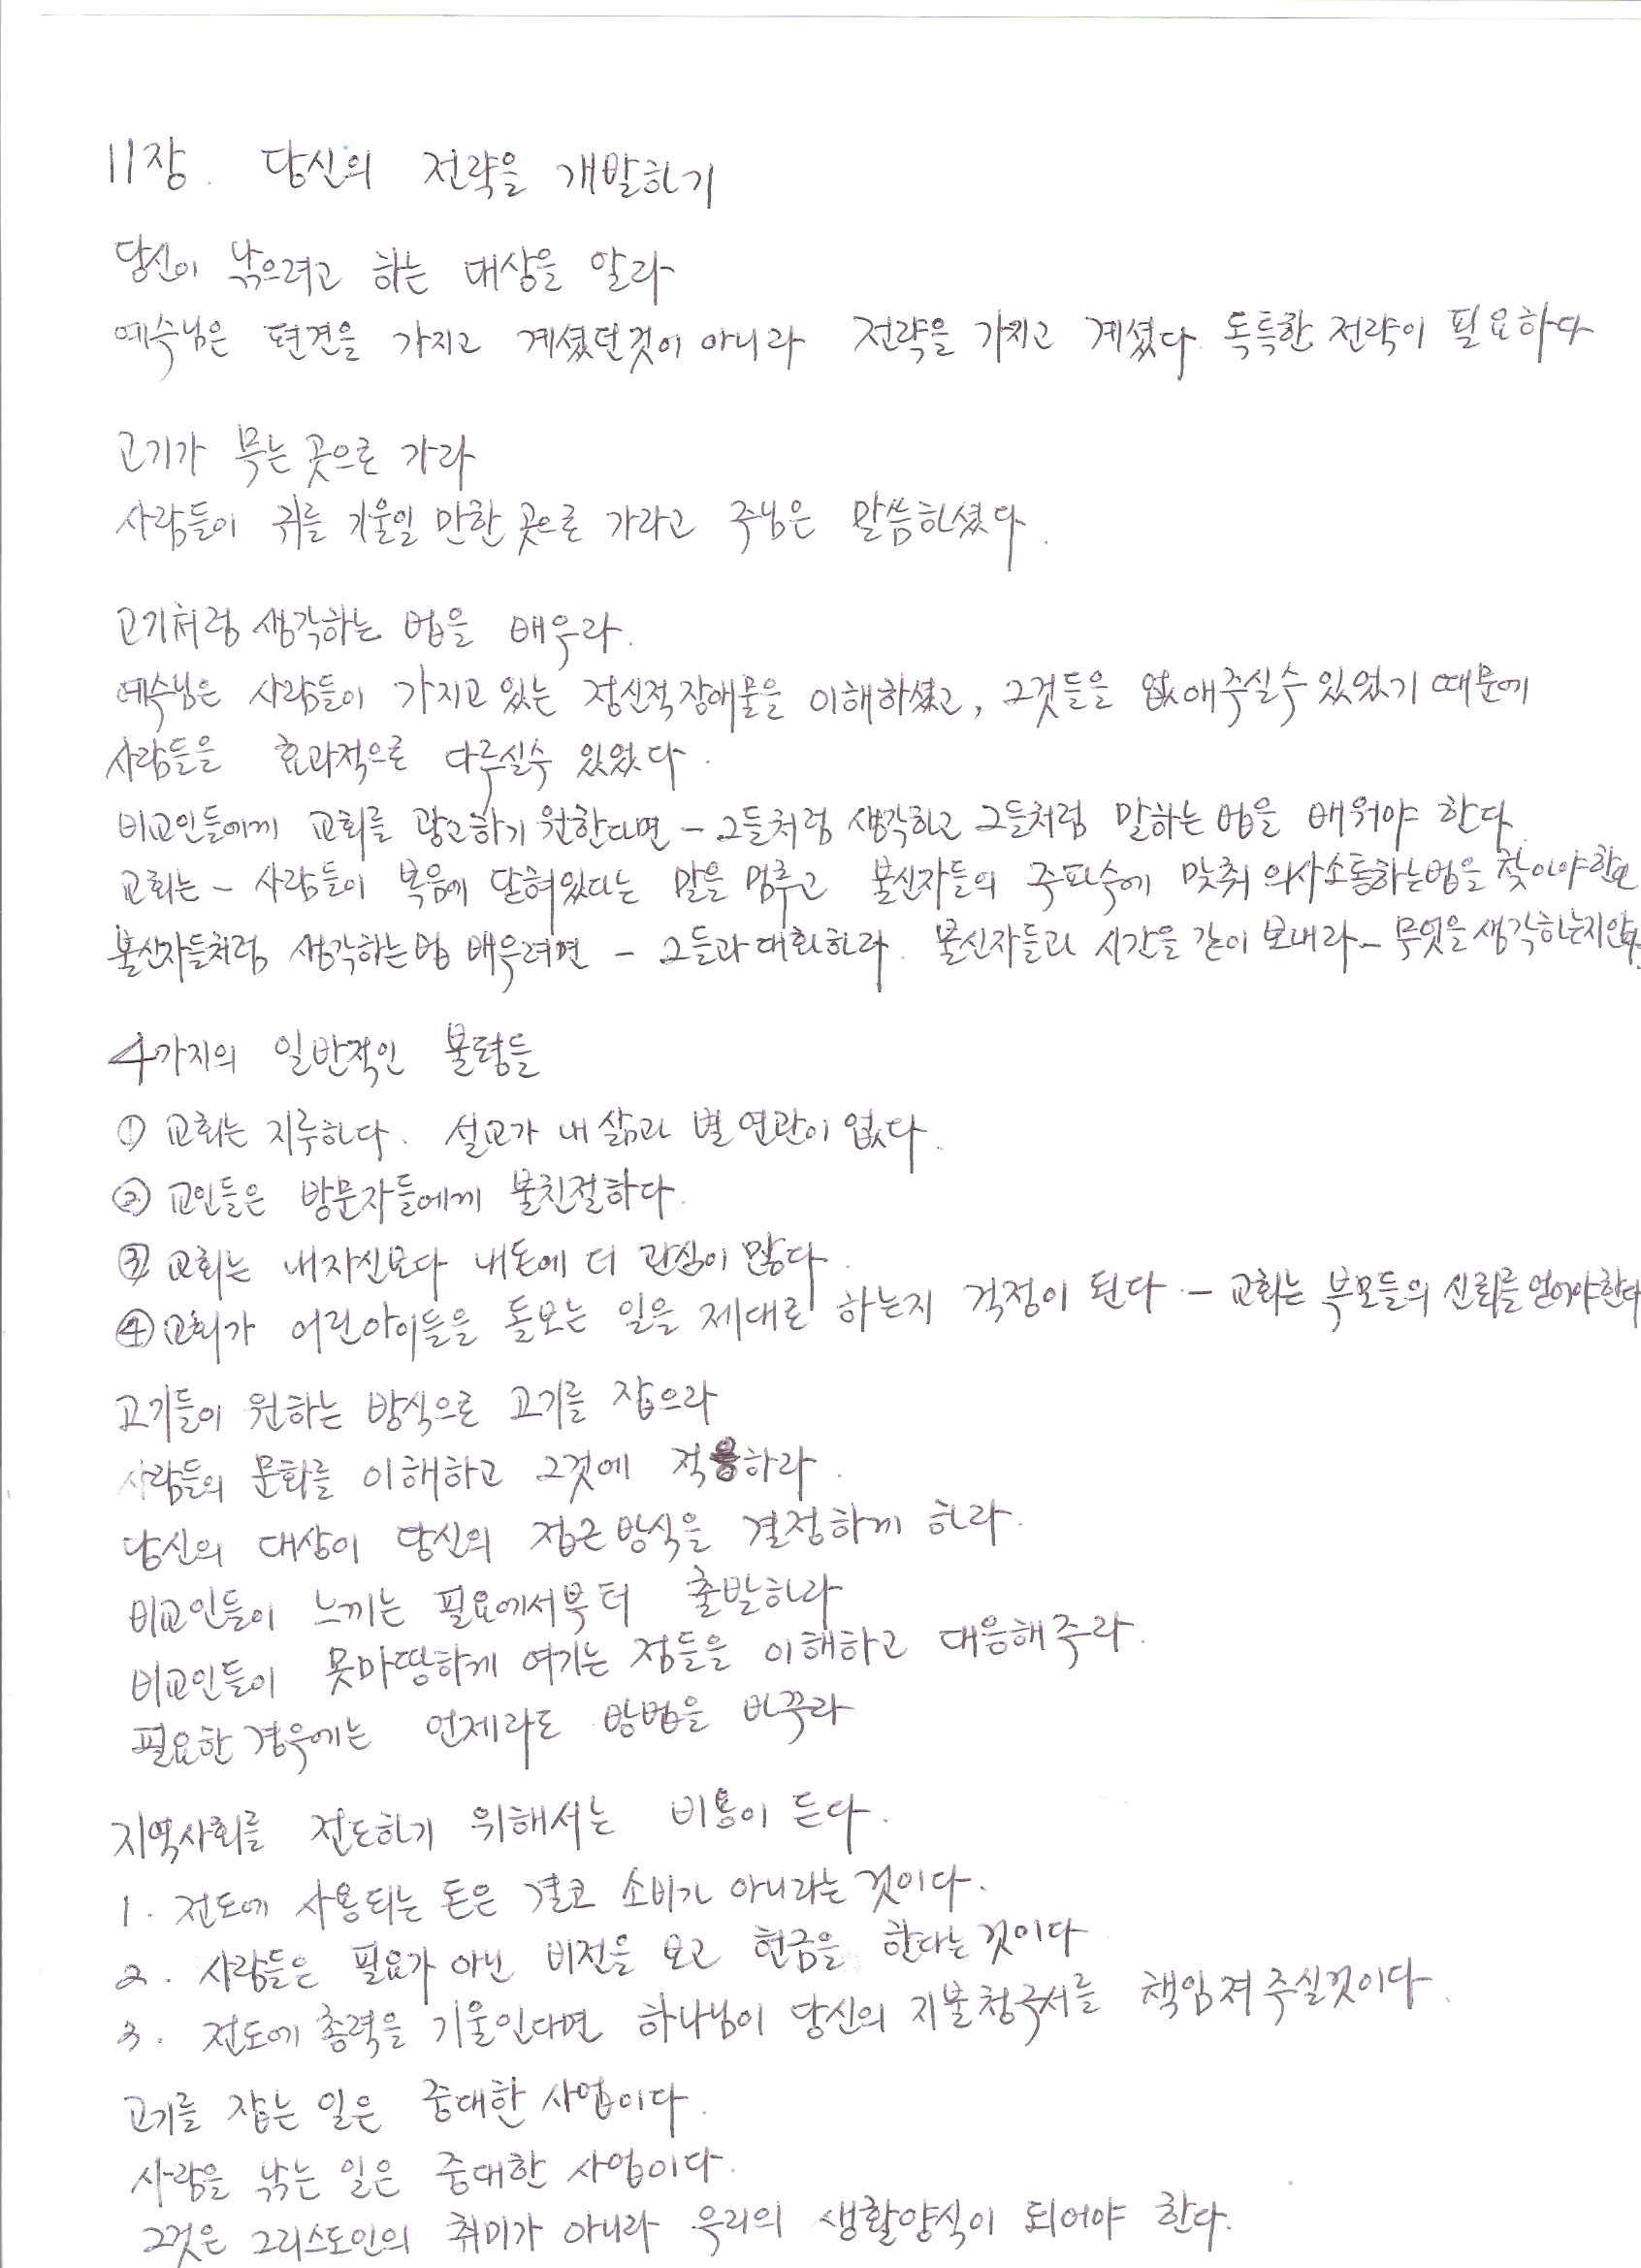 11장. 당신의 전략을 개발하기
당신이 낚으려고 하는 대상을 알라
예수님은 편견을 가지고 계셨던것이 아니라 전략을 가지고 계셨다. 독특한 전략이 필요하다
고기가 묵는 곳으로 가라
사람들이 귀를 기울일 만한 곳으로 가라고 주님은 말씀하셨다.
고기처럼 생각하는 법을 배우라.
예수님은 사람들이 가지고 있는 정신적 장애물을 이해하셨고, 그것들을 없애주실수 있었기 때문에
사람들을 효과적으로 다루실수 있었다.
비교인들에께 교회를 광고하기 원한다면 - 그들처럼 생각하고 그들처럼 말하는 법을 배워야 한다.
교회는 - 사람들이 복음에 닫혀있다는 말을 멈추고 불신자들의 주파수에 맞춰 의사소통하는법을 찾아야한다
불신자들처럼 생각하는법 배우려면 - 그들과 대화하라. 불신자들과 시간을 같이 보내라 - 무엇을 생각하는지안다.
4가지의 일반적인 불평들
① 교회는 지루하다. 설교가 내 삶과 별 연관이 없다.
② 교인들은 방문자들에께 불친절하다.
③ 교회는 내자신보다 내돈에 더 관심이 많다.
④ 교회가 어린아이들을 돌보는 일을 제대로 하는지 걱정이 된다 - 교회는 부모들의 신뢰를 얻어야한다
고기들이 원하는 방식으로 고기를 잡으라
사람들의 문화를 이해하고 그것에 적응하라.
당신의 대상이 당신의 접근방식을 결정하게 하라.
비교인들이 느끼는 필요에서부터 출발하라
비교인들이 못마땅하게 여기는 점들을 이해하고 대응해주라.
필요한 경우에는 언제라도 방법을 바꾸라
지역사회를 전도하기 위해서는 비용이 든다.
1. 전도에 사용되는 돈은 결코 소비가 아니라는 것이다.
2. 사람들은 필요가 아닌 비전을 보고 헌금을 한다는 것이다
3. 전도에 총력을 기울인다면 하나님이 당신의 지불청구서를 책임져 주실것이다.
고기를 잡는 일은 중대한 사업이다.
사람을 낚는 일은 중대한 사업이다.
그것은 그리스도인의 취미가 아니라 우리의 생활양식이 되어야 한다.